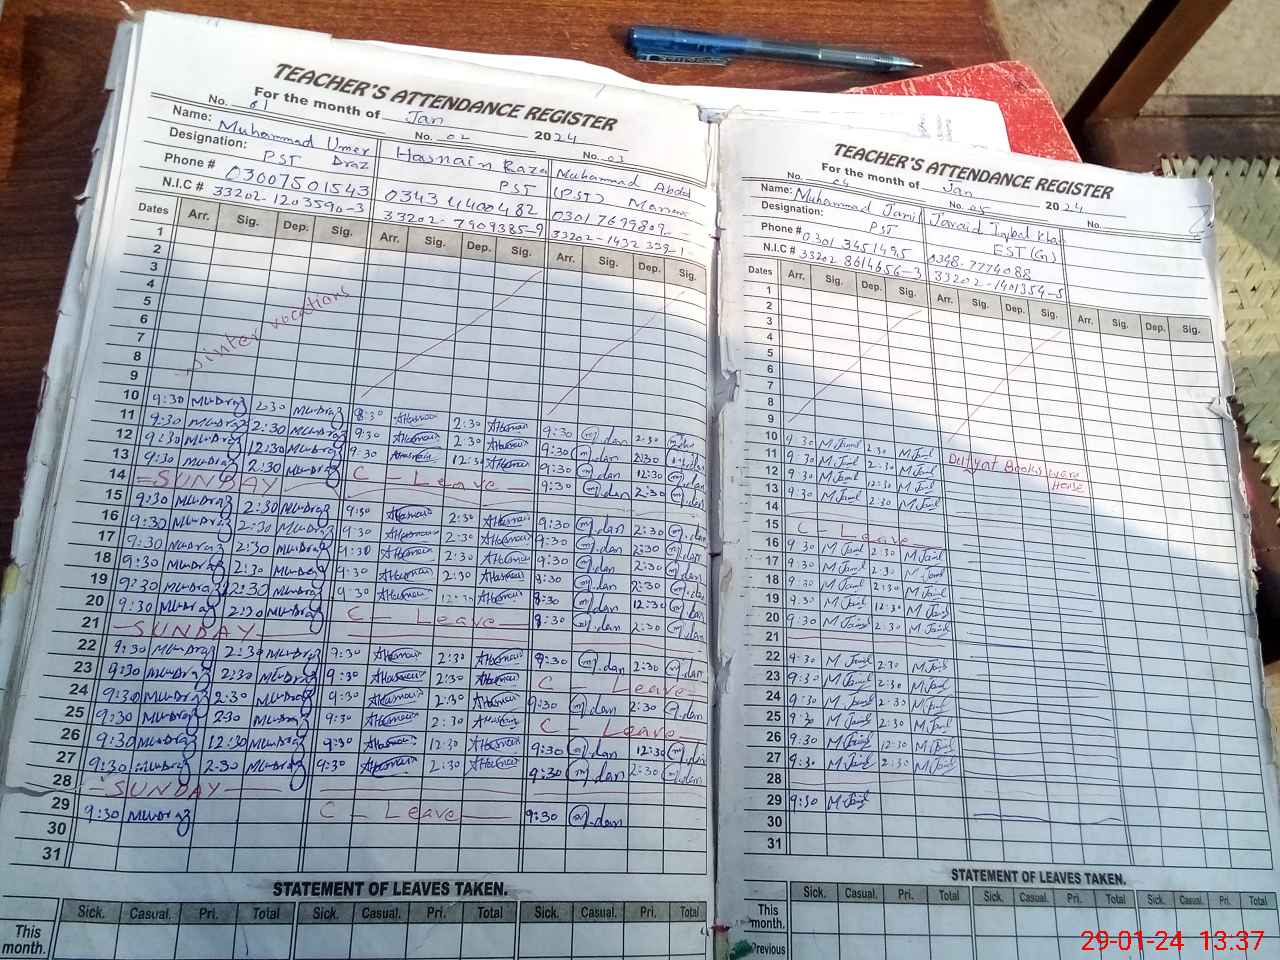 TEACHER'S ATTENDANCE REGISTER
For the month of Jan 2024
No. 01 No. 02 No. 03
Name: Muhammad Umer Draz Hasnain Raza Muhammad Abdul
Designation: PST PST (PST)
Phone # 03007501543 0343 4400482
N.I.C # 33202-1203590-3 33202-7909385-9
Dates Arr. Sig. Dep. Sig. Arr. Sig. Dep. Sig. Arr. Sig. Dep. Sig.
1
2
3
4
5
6
7
8
9
winter vocations
10 9:30 Mu.Draz 2:30 Mu.Draz 8:30 AHasnain 2:30 AHasnain 9:30 m.dan 2:30 m.dan
11 9:30 Mu.Draz 2:30 Mu.Draz 9:30 AHasnain 2:30 AHasnain 9:30 m.dan 2:30 m.dan
12 9:30 Mu.Draz 12:30 Mu.Draz 9:30 AHasnain 12:30 AHasnain 9:30 m.dan 12:30 m.dan
13 9:30 Mu.Draz 2:30 Mu.Draz C - Leave 9:30 m.dan 2:30 m.dan
14 SUNDAY
15 9:30 Mu.Draz 2:30 Mu.Draz 9:30 AHasnain 2:30 AHasnain 9:30 m.dan 2:30 m.dan
16 9:30 Mu.Draz 2:30 Mu.Draz 9:30 AHasnain 2:30 AHasnain 9:30 m.dan 2:30 m.dan
17 9:30 Mu.Draz 2:30 Mu.Draz 9:30 AHasnain 2:30 AHasnain 9:30 m.dan 2:30 m.dan
18 9:30 Mu.Draz 2:30 Mu.Draz 9:30 AHasnain 2:30 AHasnain 9:30 m.dan 2:30 m.dan
19 9:30 Mu.Draz 12:30 Mu.Draz 9:30 AHasnain 12:30 AHasnain 8:30 m.dan 12:30 m.dan
20 9:30 Mu.Draz 2:30 Mu.Draz C - Leave 8:30 m.dan 2:30 m.dan
21 SUNDAY
22 9:30 Mu.Draz 2:30 Mu.Draz 9:30 AHasnain 2:30 AHasnain 9:30 m.dan 2:30 m.dan
23 9:30 Mu.Draz 2:30 Mu.Draz 9:30 AHasnain 2:30 AHasnain C - Leave
24 9:30 Mu.Draz 2:30 Mu.Draz 9:30 AHasnain 2:30 AHasnain 9:30 m.dan 2:30 m.dan
25 9:30 Mu.Draz 2:30 Mu.Draz 9:30 AHasnain 2:30 AHasnain C - Leave
26 9:30 Mu.Draz 12:30 Mu.Draz 9:30 AHasnain 12:30 AHasnain 9:30 m.dan 12:30 m.dan
27 9:30 Mu.Draz 2:30 Mu.Draz 9:30 AHasnain 2:30 AHasnain 9:30 m.dan 2:30 m.dan
28 SUNDAY
29 9:30 Mu.Draz C - Leave 9:30 m.dan
30
31
STATEMENT OF LEAVES TAKEN.
Sick. Casual. Pri. Total Sick. Casual. Pri. Total Sick. Casual. Pri. Total
This month.
TEACHER'S ATTENDANCE REGISTER
For the month of Jan 2024
No. 04 No. 05 No.
Name: Muhammad Jamil Javaid Iqbal Khan
Designation: PST EST (G)
Phone # 0301 3451495 0348-7774088
N.I.C # 33202 8614656-3 33202-1401354-5
Dates Arr. Sig. Dep. Sig. Arr. Sig. Dep. Sig. Arr. Sig. Dep. Sig.
1
2
3
4
5
6
7
8
9
10 9:30 M Jamil 2:30 M Jamil
11 9:30 M Jamil 2:30 M Jamil Duty at Books ware House
12 9:30 M Jamil 12:30 M Jamil
13 9:30 M Jamil 2:30 M Jamil
14
15 C - Leave
16 9:30 M Jamil 2:30 M Jamil
17 9:30 M Jamil 2:30 M Jamil
18 9:30 M Jamil 2:30 M Jamil
19 9:30 M Jamil 12:30 M Jamil
20 9:30 M Jamil 2:30 M Jamil
21
22 9:30 M Jamil 2:30 M Jamil
23 9:30 M Jamil 2:30 M Jamil
24 9:30 M Jamil 2:30 M Jamil
25 9:30 M Jamil 2:30 M Jamil
26 9:30 M Jamil 12:30 M Jamil
27 9:30 M Jamil 2:30 M Jamil
28
29 9:30 M Jamil
30
31
STATEMENT OF LEAVES TAKEN.
Sick. Casual. Pri. Total Sick. Casual. Pri. Total Sick. Casual. Pri. Total
This month.
Previous
29-01-24 13:37